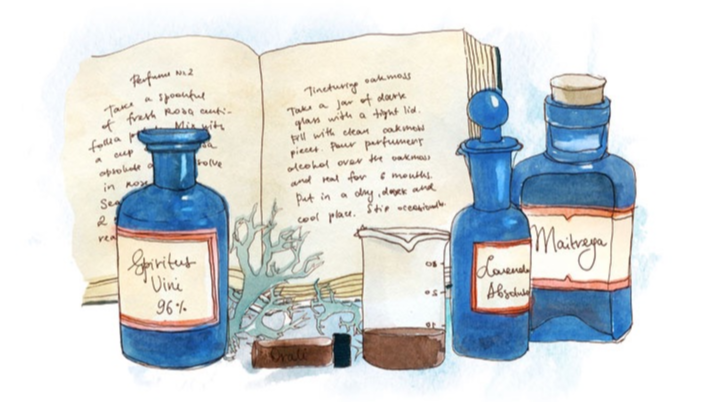 Perfume №2
Take a spoonful
of fresh Rosa centi-
folia
a cup
absolute
in rose
2
Tincturing oakmoss
Take a jar of dark
glass with a tight lid.
Fill with clean oakmoss
pieces. Pour perfumers
alcohol over the oakmoss
and seal for 6 months.
Put in a dry, dark and
cool place. Stir occasionally.
Spiritus
Vini
96%
80
50
10
Lavender
Absolute
Maitreya